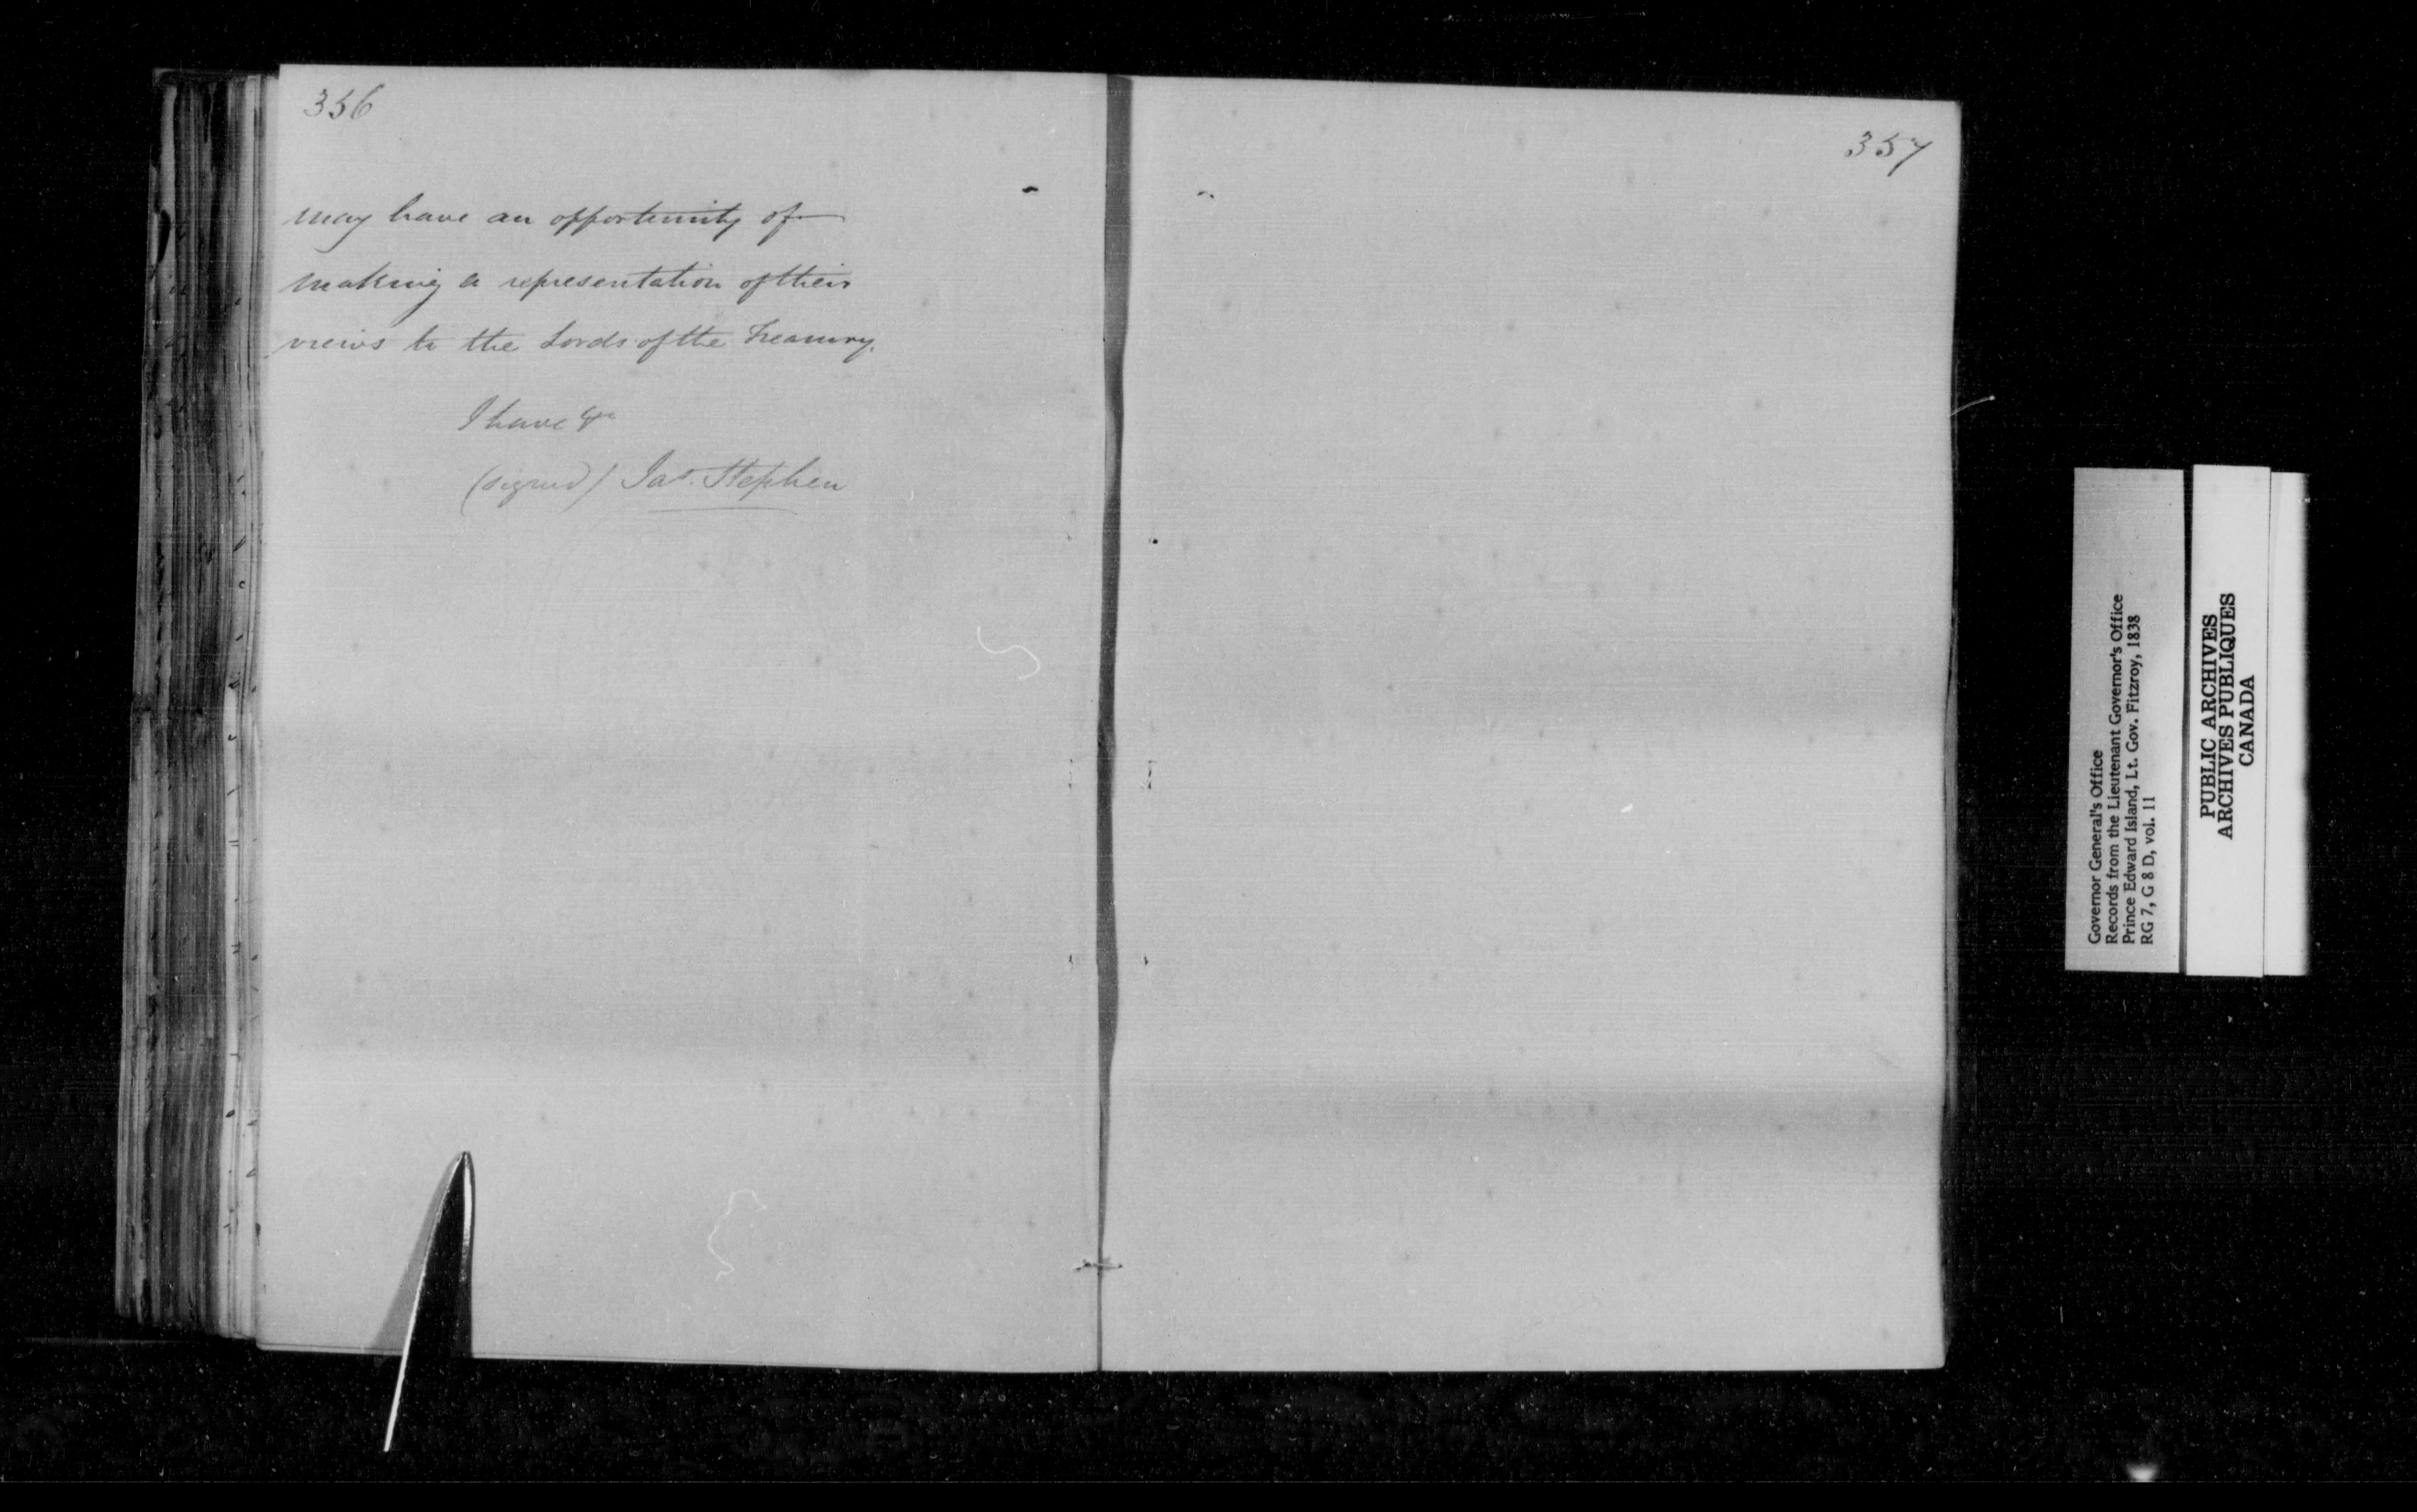 356
may have an opportunity of
making a representation of their
views to the Lords of the Treasury.
I have &c
(signed) Jas. Stephen
357
Governor General's Office
Records from the Lieutenant Governor's Office
Prince Edward Island, Lt. Gov. Fitzroy, 1838
RG 7, G 8 D, vol. 11
PUBLIC ARCHIVES
ARCHIVES PUBLIQUES
CANADA